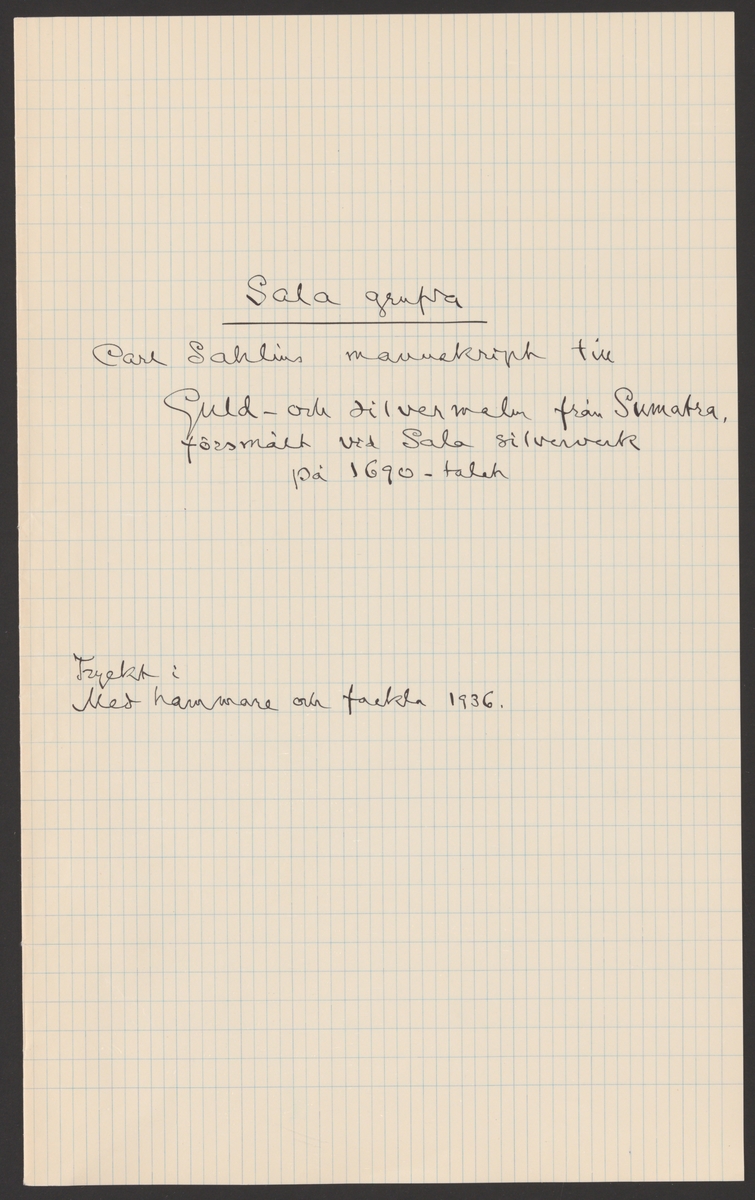 Sala gruva
Carl Sahlins manuskript till
Guld- och silvermalm från Sumatra,
försmält vid Sala silververk
på 1690-talet
Tryckt i
Med hammare och fackla 1936.